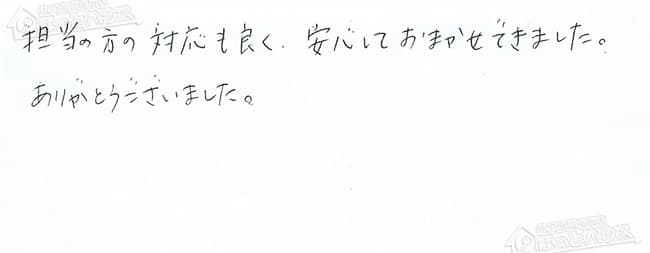 担当の方の対応も良く、安心しておまかせできました。
ありがとうございました。